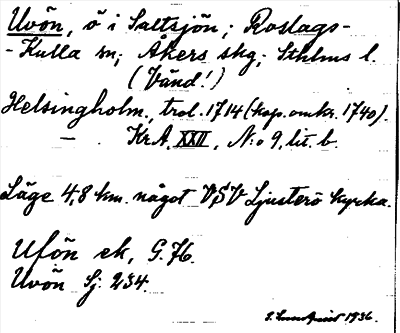 Uvön, ö i Saltsjön; Roslags-
-Kulla sn; Åkers skg; Sthlms l.
(Vänd!)
Helsingholm, trol. 1714 (kop. omkr. 1740).
— . KrA. XXII, N:o 9, lit. b.
Läge 4,8 km. något VSV Ljusterö kyrka.
Ufön ek, G. 76.
Uvön Sj. 234.
1936.